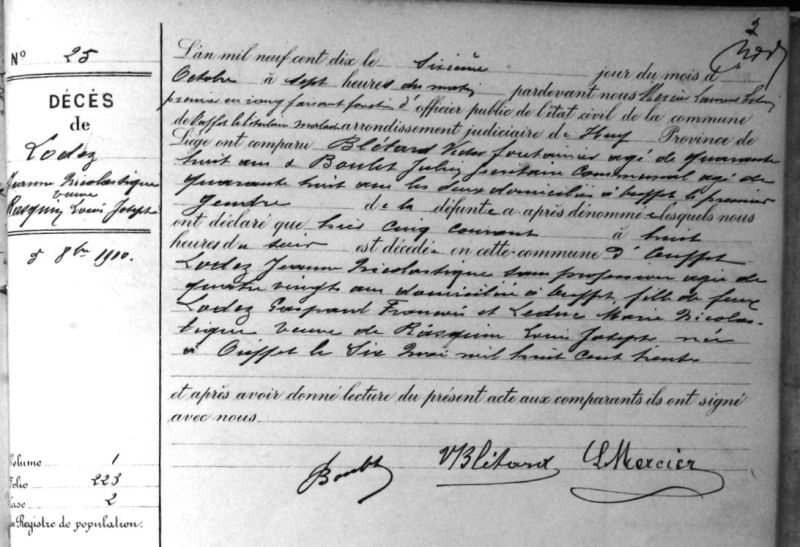 2
Nº 25
DÉCÈS
de
Lodez
Jeanne Nicolastique
veuve
Rasquin Louis Joseph
5 8bre 1910.
Volume 1
Folio 223
Case 2
du Registre de population.
L'an mil neuf cent dix le sixième jour du mois d
Octobre à sept heures du matin pardevant nous Mercier Laurent
premier en rang faisant fonction d'officier public de l'état civil de la commune
d'Ouffet le titulaire malade arrondissement judiciaire de Huy Province de
Liége ont comparu Blétard Victor fontainier agé de quarante
huit ans & Boulet Jules secrétaire communal agé de
quarante huit ans les deux domiciliés à Ouffet le premier
gendre de la défunte ci après dénommée lesquels nous
ont déclaré que hier cinq courant à huit
heures du soir est décédée en cette commune d'Ouffet
Lodez Jeanne Nicolastique sans profession agée de
quatre vingts ans domiciliée à Ouffet, fille de feux
Lodez Gaspard François et Leduc Marie Nicolas-
tique veuve de Rasquin Louis Joseph, née
à Ouffet le six Mai mil huit cent trente
et après avoir donné lecture du présent acte aux comparants ils ont signé
avec nous
Boulet VBlétard LMercier